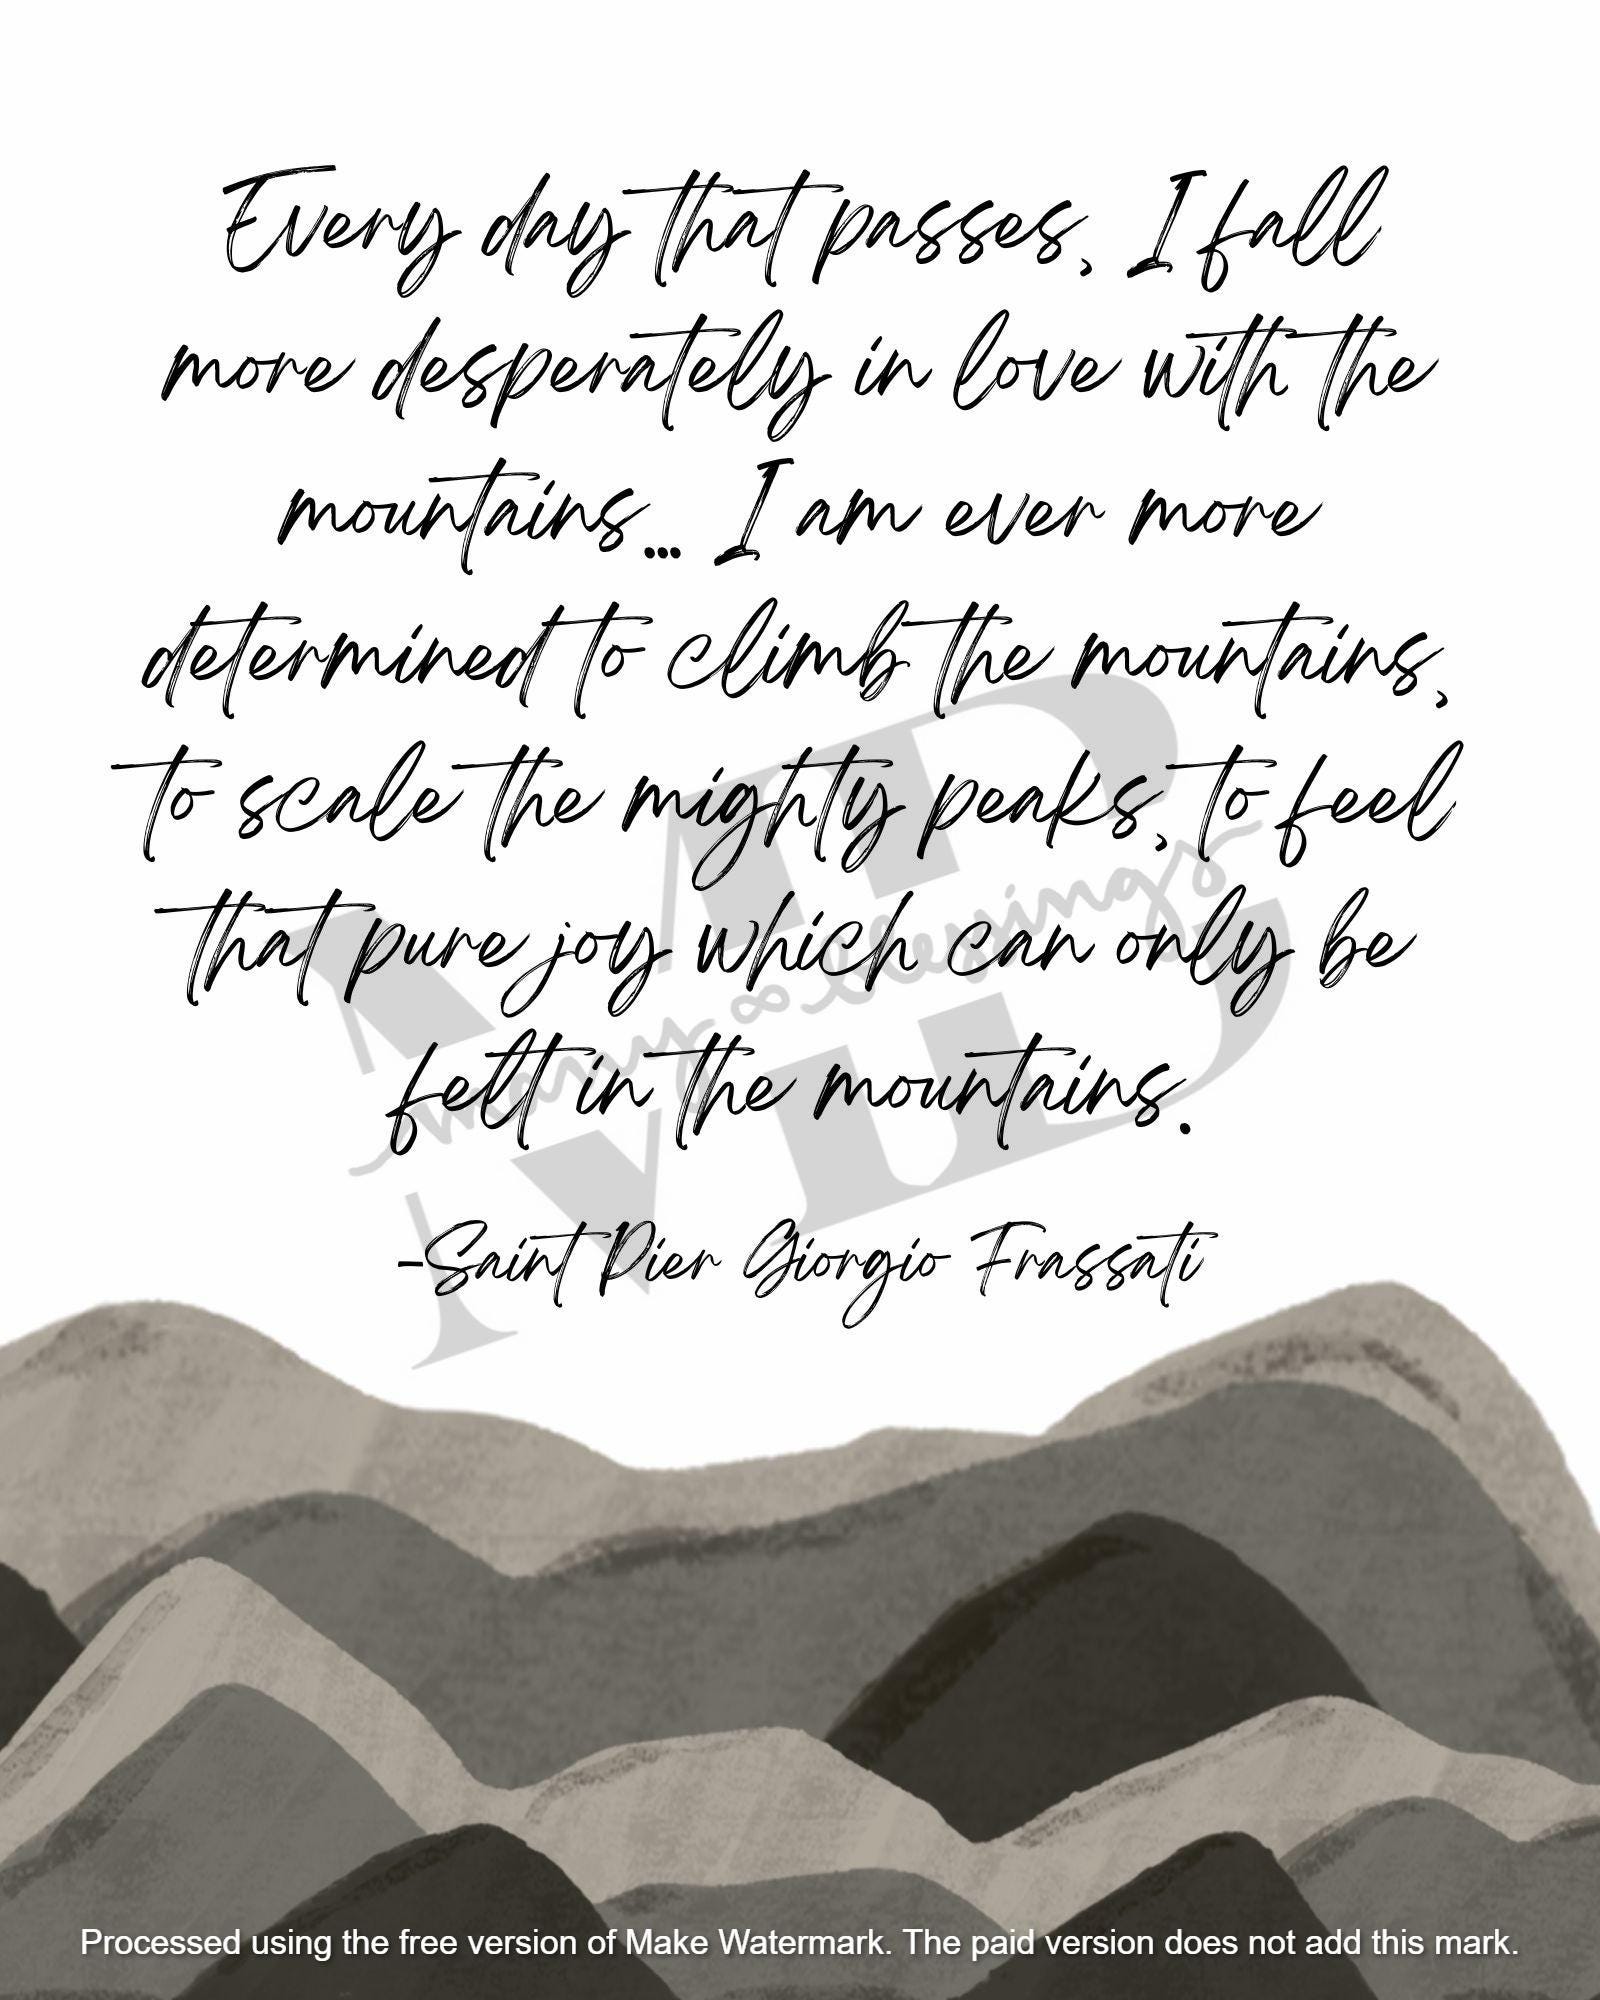 Every day that passes, I fall
more desperately in love with the
mountains... I am ever more
determined to climb the mountains,
to scale the mighty peaks, to feel
that pure joy which can only be
felt in the mountains.
-Saint Pier Giorgio Frassati
MTB
many blessings
MB
Processed using the free version of Make Watermark. The paid version does not add this mark.